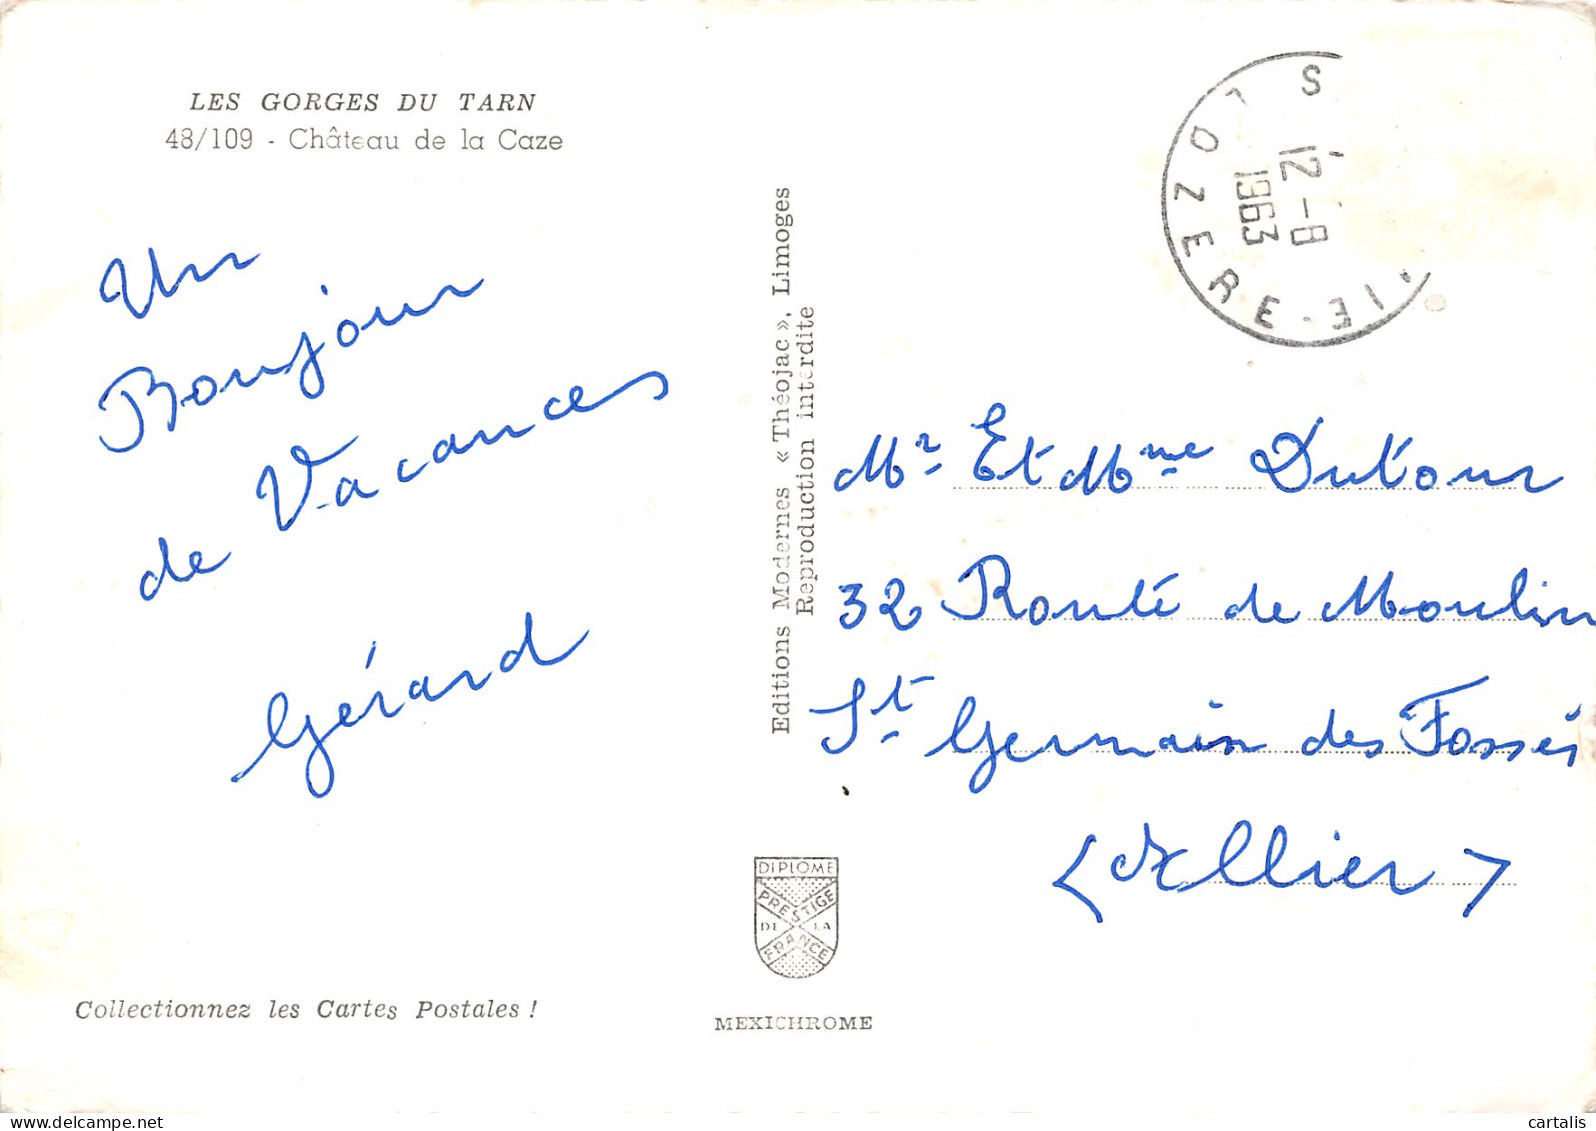 LES GORGES DU TARN
48/109 - Château de la Caze
Un
Bonjour
de Vacances
Gérard
Collectionnez les Cartes Postales !
Editions Modernes « Théojac », Limoges
Reproduction interdite
DIPLOME
PRESTIGE
DE LA
FRANCE
MEXICHROME
12-8
1963
LOZERE
Mr Et Mme Dutour
32 Route de Moulin
St Germain des Fossés
(Allier)
cartalis